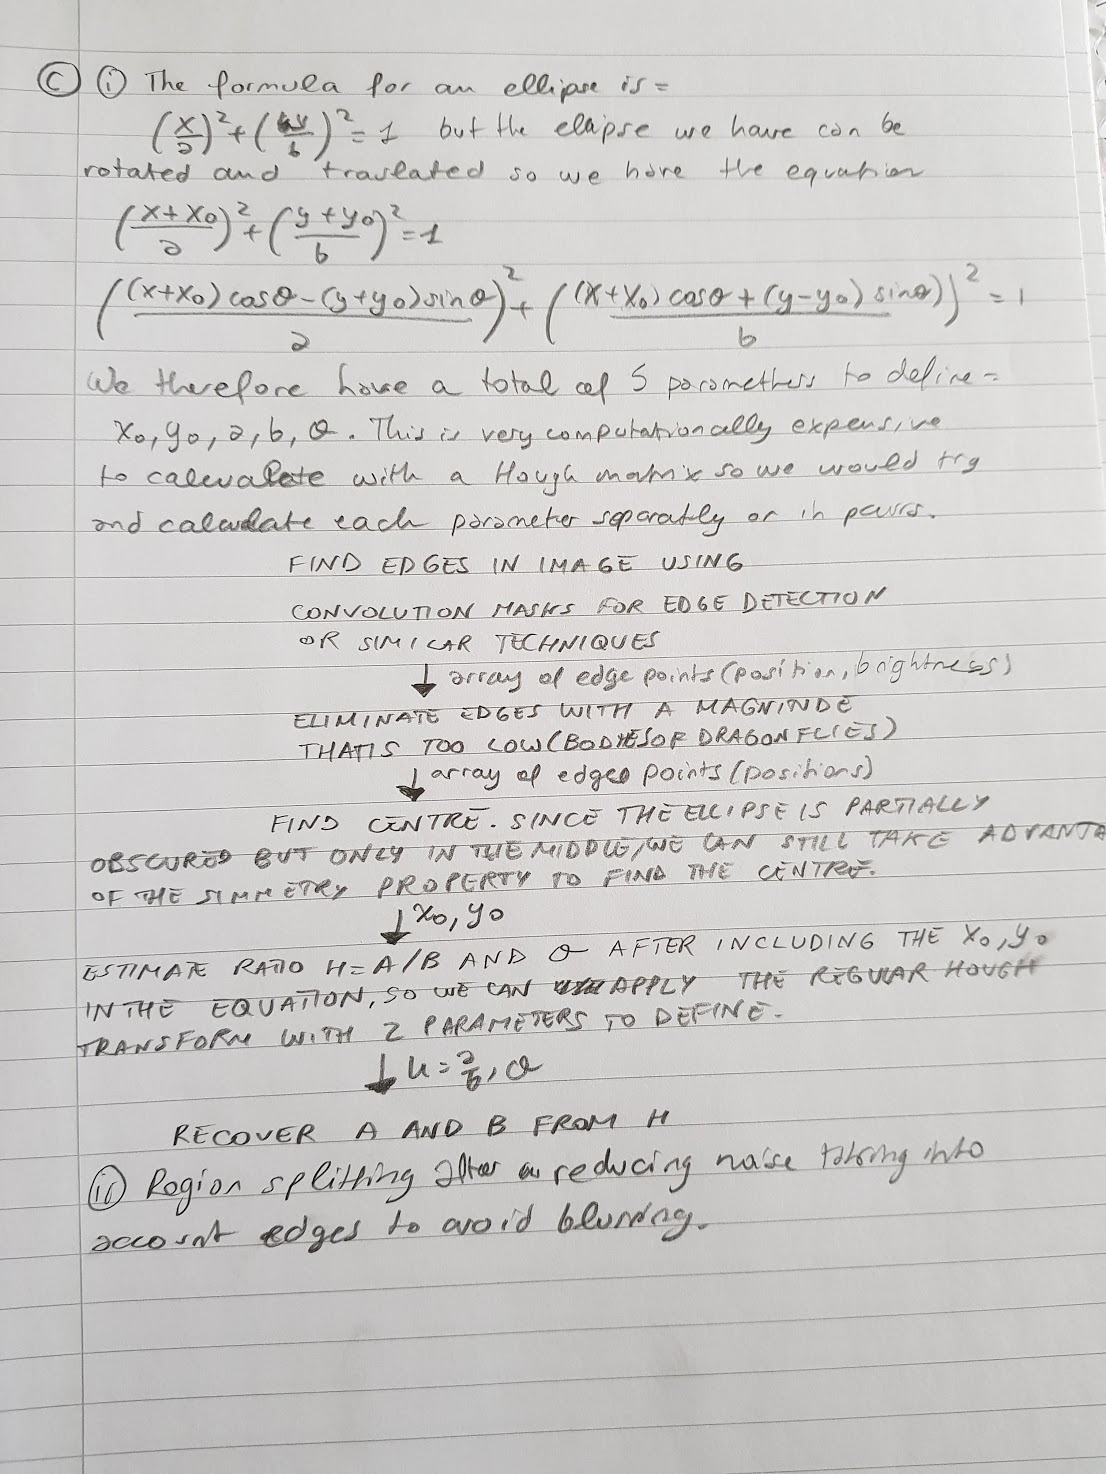 (c) (i) The formula for an ellipse is =
(x/a)² + (y/b)² = 1 but the ellipse we have can be
rotated and traslated so we have the equation
((x+x₀)/a)² + ((y+y₀)/b)² = 1
(((x+x₀) cosθ - (y+y₀) sinθ)/a)² + (((x+x₀) cosθ + (y-y₀) sinθ))/b)² = 1
We therefore have a total of 5 paramethers to define =
x₀, y₀, a, b, θ. This is very computationally expensive
to calculate with a Hough matrix so we would try
and calculate each parameter separatly or in pairs.
FIND EDGES IN IMAGE USING
CONVOLUTION MASKS FOR EDGE DETECTION
OR SIMILAR TECHNIQUES
↓ array of edge points (position, brightness)
ELIMINATE EDGES WITH A MAGNINDE
THAT IS TOO LOW (BODYES OF DRAGONFLIES)
↓ array of edges points (positions)
FIND CENTRE. SINCE THE ELLIPSE IS PARTIALLY
OBSCURED BUT ONLY IN THE MIDDLE, WE CAN STILL TAKE ADVANTA
OF THE SIMMETRY PROPERTY TO FIND THE CENTRE.
↓ x₀, y₀
ESTIMATE RATIO H = A/B AND θ AFTER INCLUDING THE X₀, Y₀
IN THE EQUATION, SO WE CAN APPLY THE REGULAR HOUGH
TRANSFORM WITH 2 PARAMETERS TO DEFINE.
↓ H = a/b, θ
RECOVER A AND B FROM H
(ii) Region splitting after reducing noise taking into
account edges to avoid blurring.